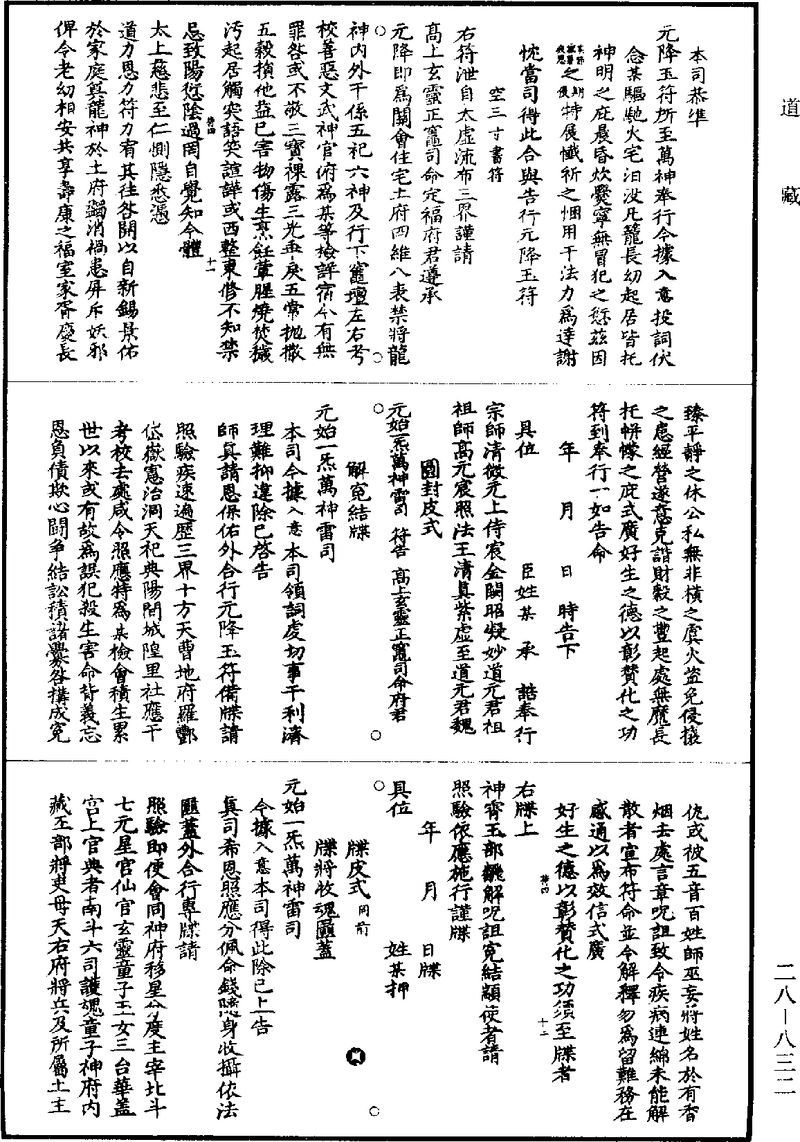 道藏
本司恭準
元降玉符所至萬神奉行今據入意投詞伏
念某驅馳火宅汩沒凡籠長幼起居皆托
神明之庇晨昏炊爨寧無冒犯之愆茲因
之特展懺祈之悃用干法力為達謝
忱當司得此合與告行元降玉符
空三寸書符
右符泄自太虛流布三界謹請
高上玄靈正竈司命定福府君遵承
元降即為關會住宅土府四維八表禁將龍
神內外干係五祀六神及行下竈壇左右考
校善惡文武神官俯為某等檢詳宿今有無
罪咎或不敬三寶裸露三光乖戾五常拋撒
五穀損他益已害物傷生烹飪葷腥燒焚穢
污起居觸突語笑諠譁或西整東修不知禁
忌致陽愆陰過罔自覺知今體
太上慈悲至仁惻隱愁憑
道力恩力符力宥其往咎開以自新錫景佑
於家庭奠龍神於土府蠲消禍患屏斥妖邪
俾令老幼相安共享壽康之福室家胥慶長
臻平靜之休公私無非橫之虞火盜免侵攘
之慮經營遂意克諧財穀之豐起處無魔長
托帡幪之庇式廣好生之德以彰贊化之功
符到奉行一如告命
年 月 日 時告下
具位 臣姓某 承 誥奉行
宗師清微元上侍宸金闕昭凝妙道元君祖
祖師高元宸照法王清真紫虛至道元君魏
圓封皮式
元始一炁萬神雷司 符告 高上玄靈正竈司命府君
解冤結牒
元始一炁萬神雷司
本司今據入意本司領詞虔切事干利濟
理難抑違除已啓告
師真請恩保佑外合行元降玉符備牒請
照驗疾速遍歷三界十方天曹地府羅酆
岱嶽憲治洞天祀典陽間城隍里社應干
考校去處咸令照應特為某檢會積生累
世以來或有故為誤犯殺生害命背義忘
恩負債欺心鬪爭結訟積諸釁咎構成冤
仇或被五音百姓師巫妄將姓名於有香
烟去處言章呪詛致令疾病連綿未能解
散者宣布符命並令解釋勿為留難務在
感通以為效信式廣
好生之德以彰贊化之功須至牒者
右牒上
神霄玉部雛解呪詛冤結顯使者請
照驗依應施行謹牒
年 月 日牒
具位 姓某押
牒皮式 同前
牒將收魂匾蓋
元始一炁萬神雷司
今據入意本司得此除已上告
真司希恩照應分佩命錢隱身收攝依法
匾蓋外合行專牒請
照驗即便會同神府移星分度主宰北斗
七元星官仙官玄靈童子玉女三台華蓋
宮上官典者南斗六司護魂童子神府內
藏五部將吏母天右府將兵及所屬土主
二八—八三二